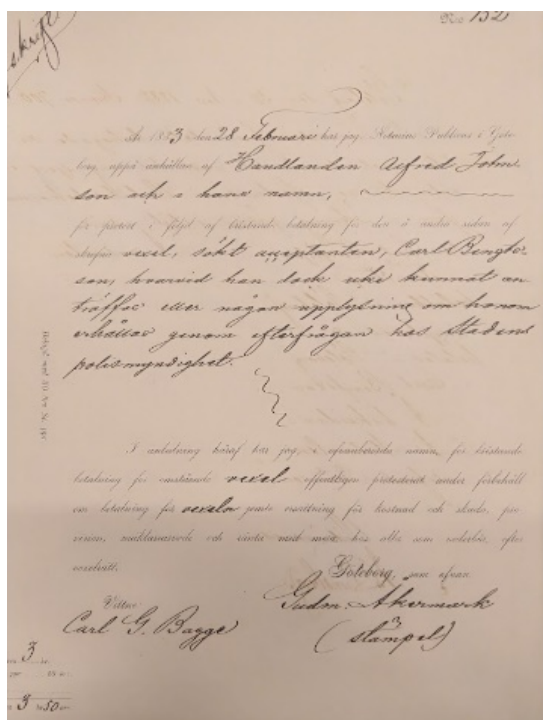 No 152
År 1883 den 28 Februari har jag, Notarius Publicus i Göte-
borg, uppå anhållan af Handlanden Alfred John-
son och i hans namn,
för protest i följd af bristande betalning för den å andra sidan af-
skrifna vexel, sökt acceptanten, Carl Bengts-
son, hvarvid han dock icke kunnat an-
träffas eller någon upplysning om honom
erhållas genom efterfrågan hos Stadens
polismyndighet.
I anledning häraf har jag, i ofvanberörda namn, för bristande
betalning för omstående vexel offentligen protesterat under förbehåll
om betalning för vexeln jemte ersättning för kostnad och skada, pro-
vision, mäklararvode och ränta med mera, hos alla som vederbör, efter
vexelrätt.
Göteborg, som ofvan
Vittne:
Gudm. Åkermark
Carl G. Bagge
(stämpel)
3
3 50